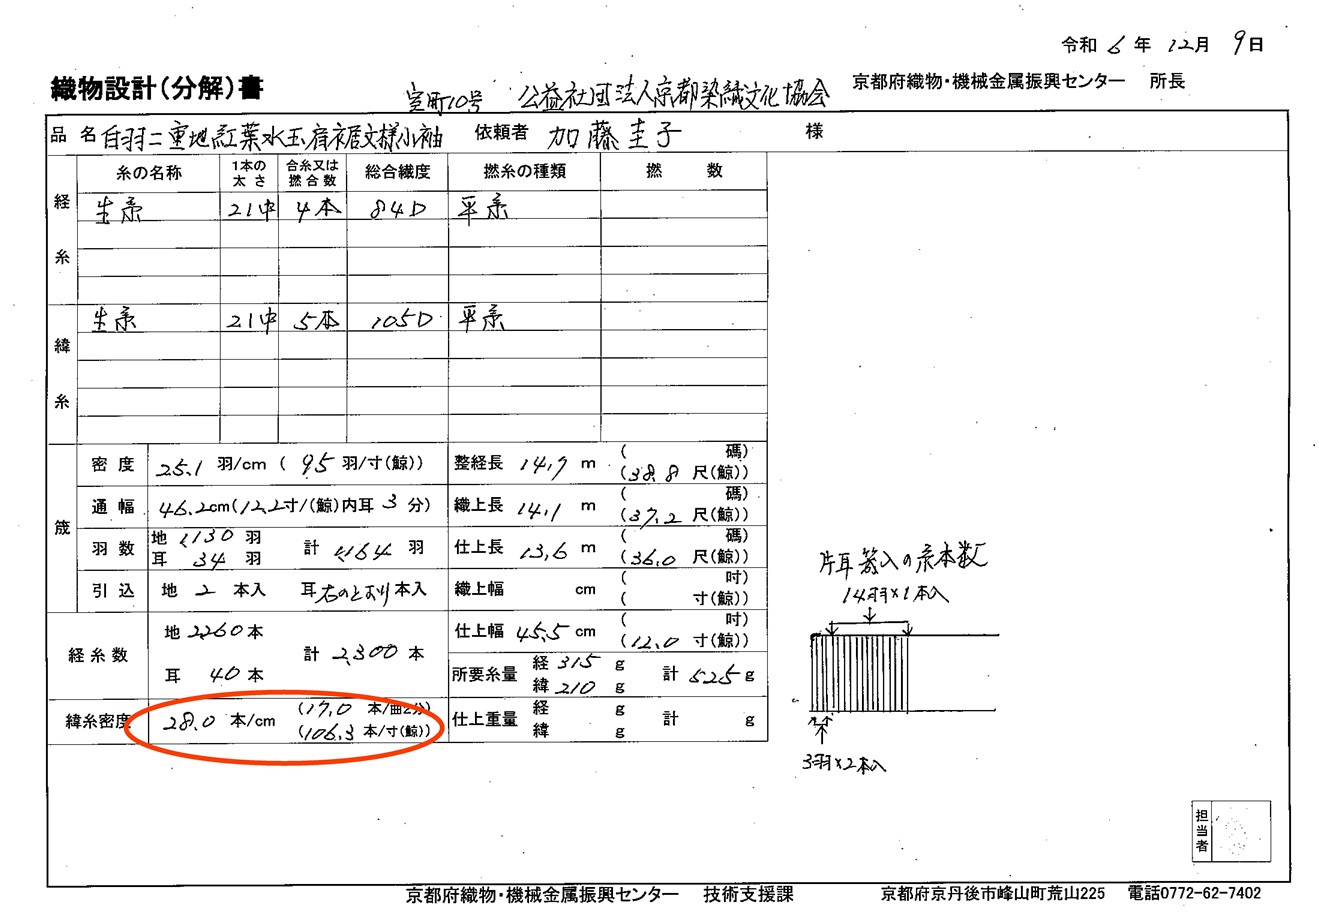 令和 6 年 12月 9日
織物設計(分解)書
室町10号 公益社団法人京都染織文化協会
京都府織物・機械金属振興センター 所長
品 名 白羽二重地紅葉水玉肩裾文様小袖 依頼者 加藤圭子 様
糸の名称 1本の太さ 合糸又は撚合数 総合繊度 撚糸の種類 撚 数
経糸
生糸 21中 4本 84D 平糸
緯糸
生糸 21中 5本 105D 平糸
筬
密度 25.1 羽/cm ( 95 羽/寸(鯨)) 整経長 14.7 m ( 碼) (38.8 尺(鯨))
通幅 46.2cm(12.2寸/(鯨)内耳 3 分) 織上長 14.1 m ( 碼) (37.2 尺(鯨))
羽数 地 1,130 羽 耳 34 羽 計 1,164 羽 仕上長 13.6 m ( 碼) (36.0 尺(鯨))
引込 地 2 本入 耳 右のとおり 本入 織上幅 cm ( 吋) ( 寸(鯨))
経糸数 地 2260 本 耳 40 本 計 2,300 本 仕上幅 45.5 cm ( 吋) (12.0 寸(鯨))
所要糸量 経 315 g 緯 210 g 計 525 g
緯糸密度 28.0 本/cm (17.0 本/曲2分) (106.3 本/寸(鯨)) 仕上重量 経 g 緯 g 計 g
片耳筬入の糸本数
14羽×1本入
3羽×2本入
担当者
京都府織物・機械金属振興センター 技術支援課 京都府京丹後市峰山町荒山225 電話0772-62-7402